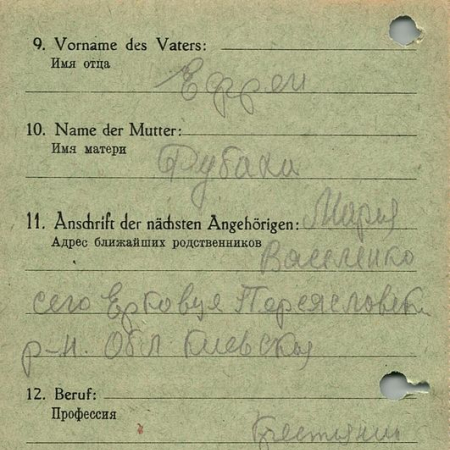 9. Vorname des Vaters:
Имя отца
Ефрем
10. Name der Mutter:
Имя матери
Рубаха
11. Anschrift der nächsten Angehörigen: Мария
Адрес ближайших родственников
Василенко
село Ерковця Переясловски
р-н. Обл Киевская
12. Beruf:
Профессия
крестьянин